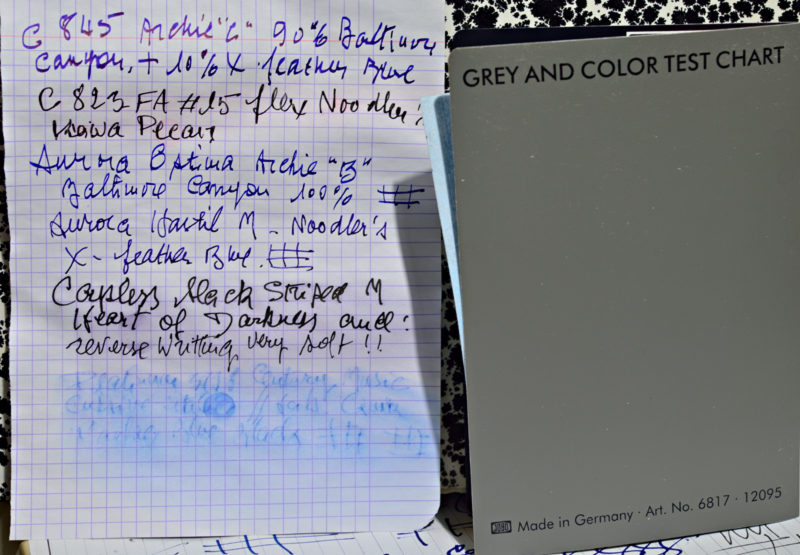 C 845 Archie "C" 90% Baltimore
Canyon, + 10% X feather Blue
C 823 FA #15 flex Noodler's
Kiowa Pecan
Aurora Optima Archie "B"
Baltimore Canyon 100%
Aurora Hastil M - Noodler's
X-feather Blue.
Capless black Striped M
Heart of Darkness and:
reverse writing very soft !!
Music
GREY AND COLOR TEST CHART
Made in Germany · Art. No. 6817 · 12095